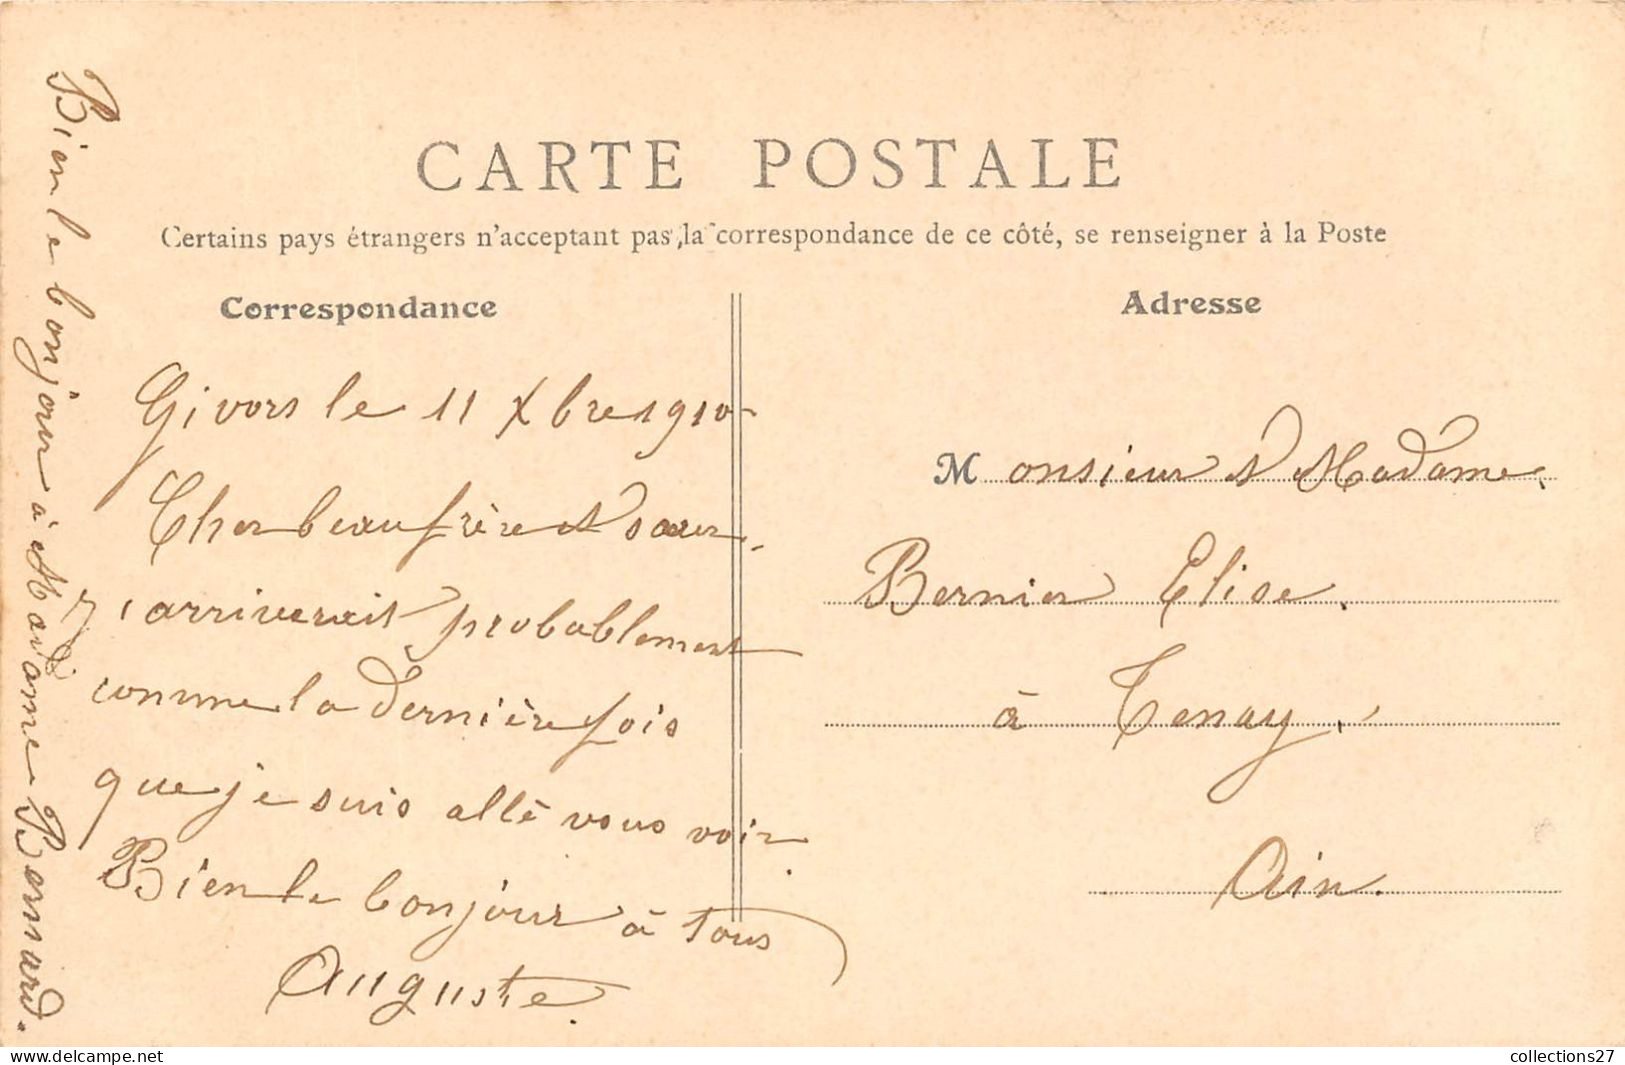 CARTE POSTALE
Certains pays étrangers n'acceptant pas la correspondance de ce côté, se renseigner à la Poste
Correspondance
Adresse
Givors le 11 Xbre 1910
Cher beaufrère et sœur
j'arriverait probablement
comme la dernière fois
que je suis allé vous voir.
Bien le bonjour à tous
Auguste.
Bien le bonjour à Madame Bernard.
Monsieur & Madame
Bernier Elise.
à Tenay.
Ain.
collections27